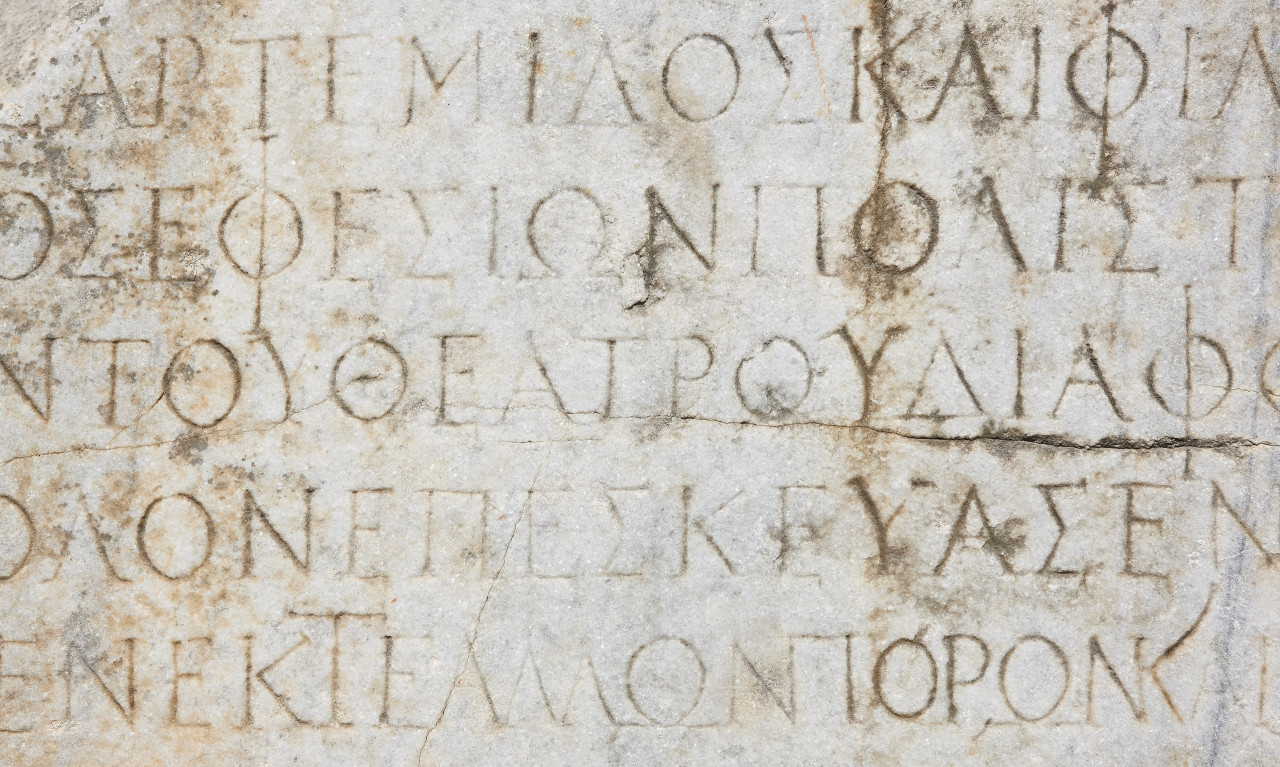 ΑΡΤΕΜΙΔΟΣΚΑΙΦΙΛ
ΟΣΕΦΕΣΙΩΝΠΟΛΙΣΤ
ΝΤΟΥΘΕΑΤΡΟΥΔΙΑΦΟ
ΟΛΟΝΕΠΕΣΚΕΥΑΣΕΝ
ΕΝΕΚΤΕΑΛΛΩΝΠΟΡΩΝΚΑΙ